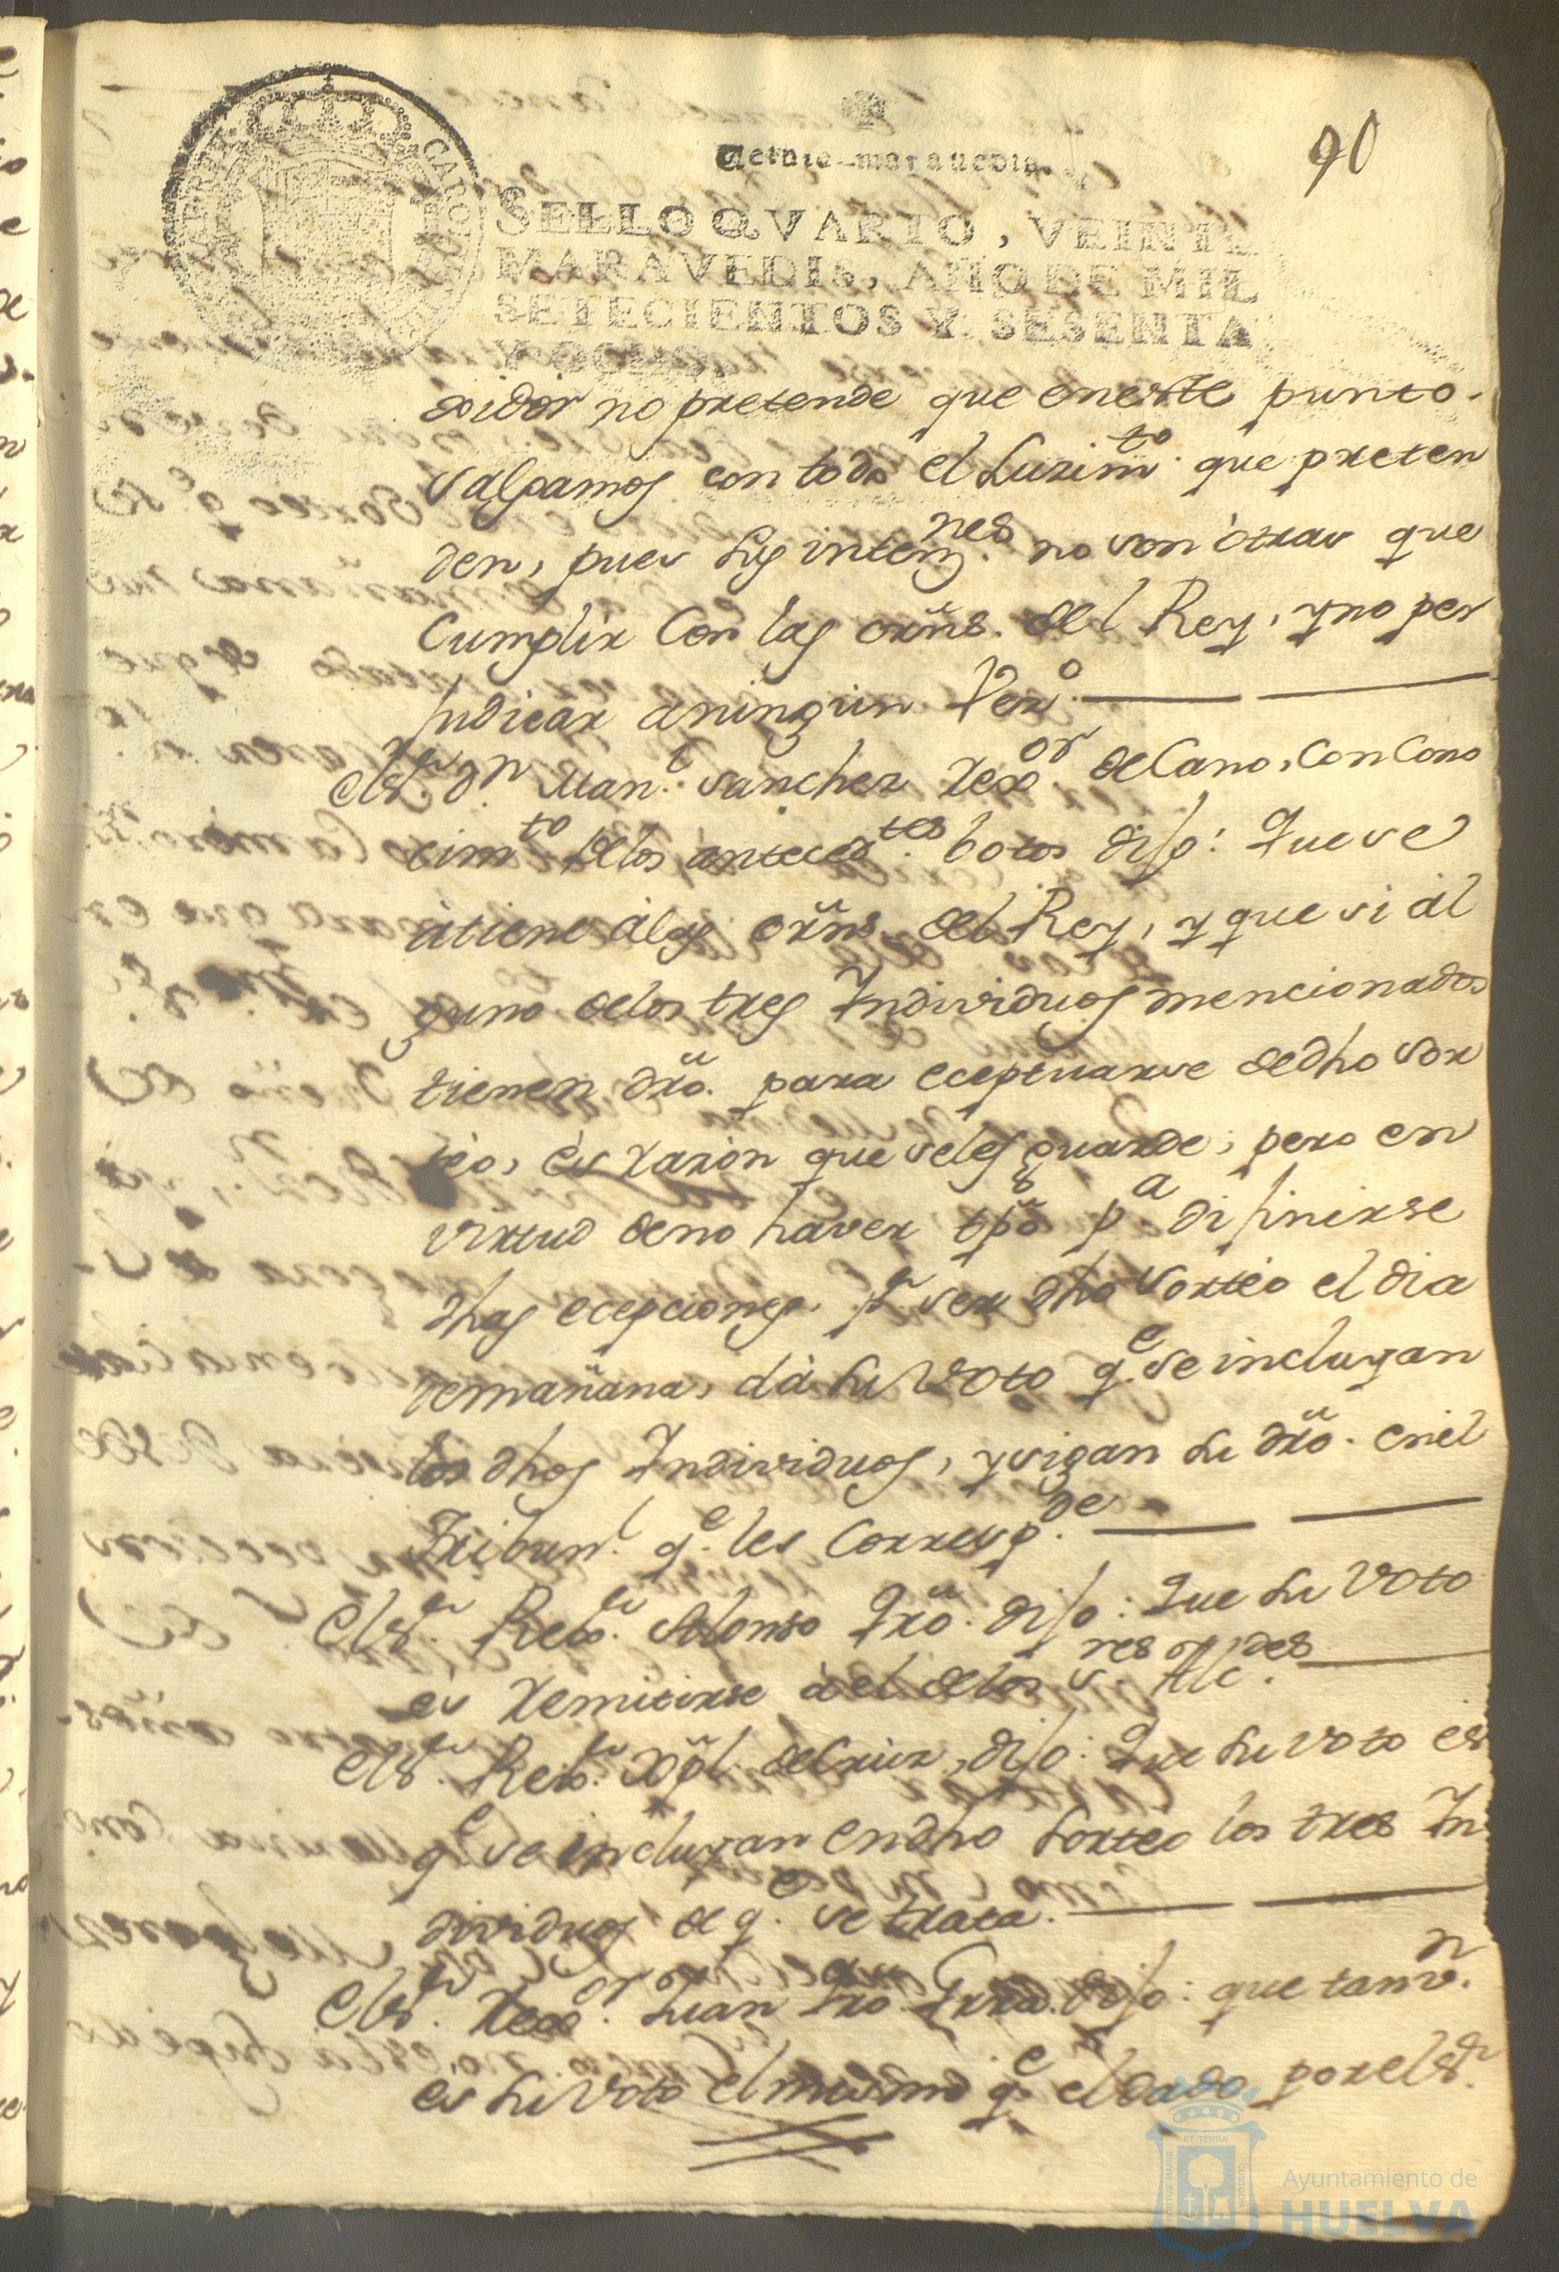 90
Veinte maravedis.
SELLO QVARTO, VEINTE
MARAVEDIS, AÑO DE MIL
SETECIENTOS Y SESENTA
Y OCHO.
xidor no pretende que eneste punto
salgamos con todo el Luzim.to que preten
den, pues sus intenz.nes no son otras que
Cumplir Con las ordns. del Rey, y no per
Judicar aningun Vez.o
El S.r D.n Man.l Sanchez Rex.or decano, Con Cono
cim.to delos anteced.tes botos dijo: Que se
atiene álas ordns. del Rey, y que si ál
guno delos tres Individuos mencionados
tienen dro. para eceptuarse dedho Sor
teo, és razon que seles guarde; pero en
virtud deno haver tpo p.a difinirse
dhas ecepciones, p.r ser dho Sorteo el dia
demañana, dá su Voto q.e se incluyan
los dhos Individuos, y sigan su dro. enel
Tribun.l q.e les Corresp.de
El S.r Rex.or Alonso Qro. dijo: Que su Voto
és Remitirse ael delos S.res Alc.des
El S.r Rex.or Xpl. de Cruz, dijo: Que su voto es
q.e se incluyan en dho Sorteo los tres In
dividuos de q.e se trata.
El S.r Rex.or Juan Qro. dijo: que tamv.n
és su Voto el mismo q.e el dado por el S.r
PORTUS MARIS ET TERRAE CUSTODIA
Ayuntamiento de
HUELVA